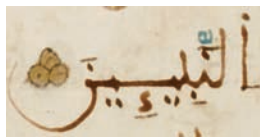 اَلنَّبِيـِٕينَ